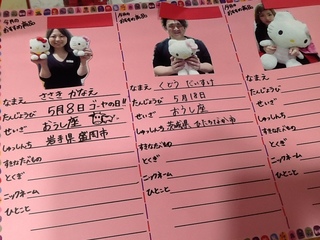 今月の
おすすめ商品
今月の
おすすめ商品
なまえ ささき かなえ
たんじょうび 5月8日 ゴーヤの日!!
せいざ おうし座
しゅっしんち 岩手県 盛岡市
すきなたべもの
とくぎ
ニックネーム
ひとこと
なまえ くどう だいすけ
たんじょうび 5月18日
せいざ おうし座
しゅっしんち 茨城県 ひたちなか市
すきなたべもの
とくぎ
ニックネーム
ひとこと
なまえ
たんじょうび
せいざ
しゅっしんち
すきなたべもの
とくぎ
ニックネーム
ひとこと